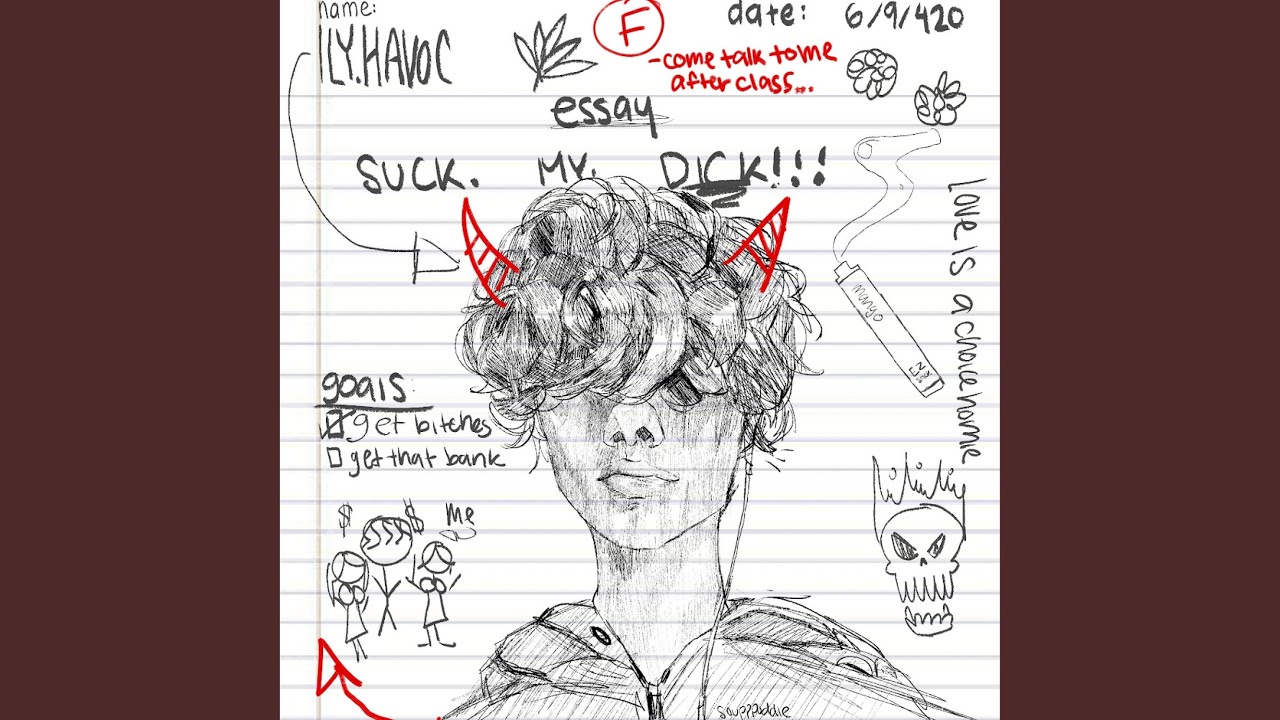 name:
ILY.HAVOC
F
-come talk to me
after class...
date: 6/9/420
essay
SUCK. MY. DICK!!!
love is a choice homie
mango
goals:
get bitches
get that bank
$ $ me